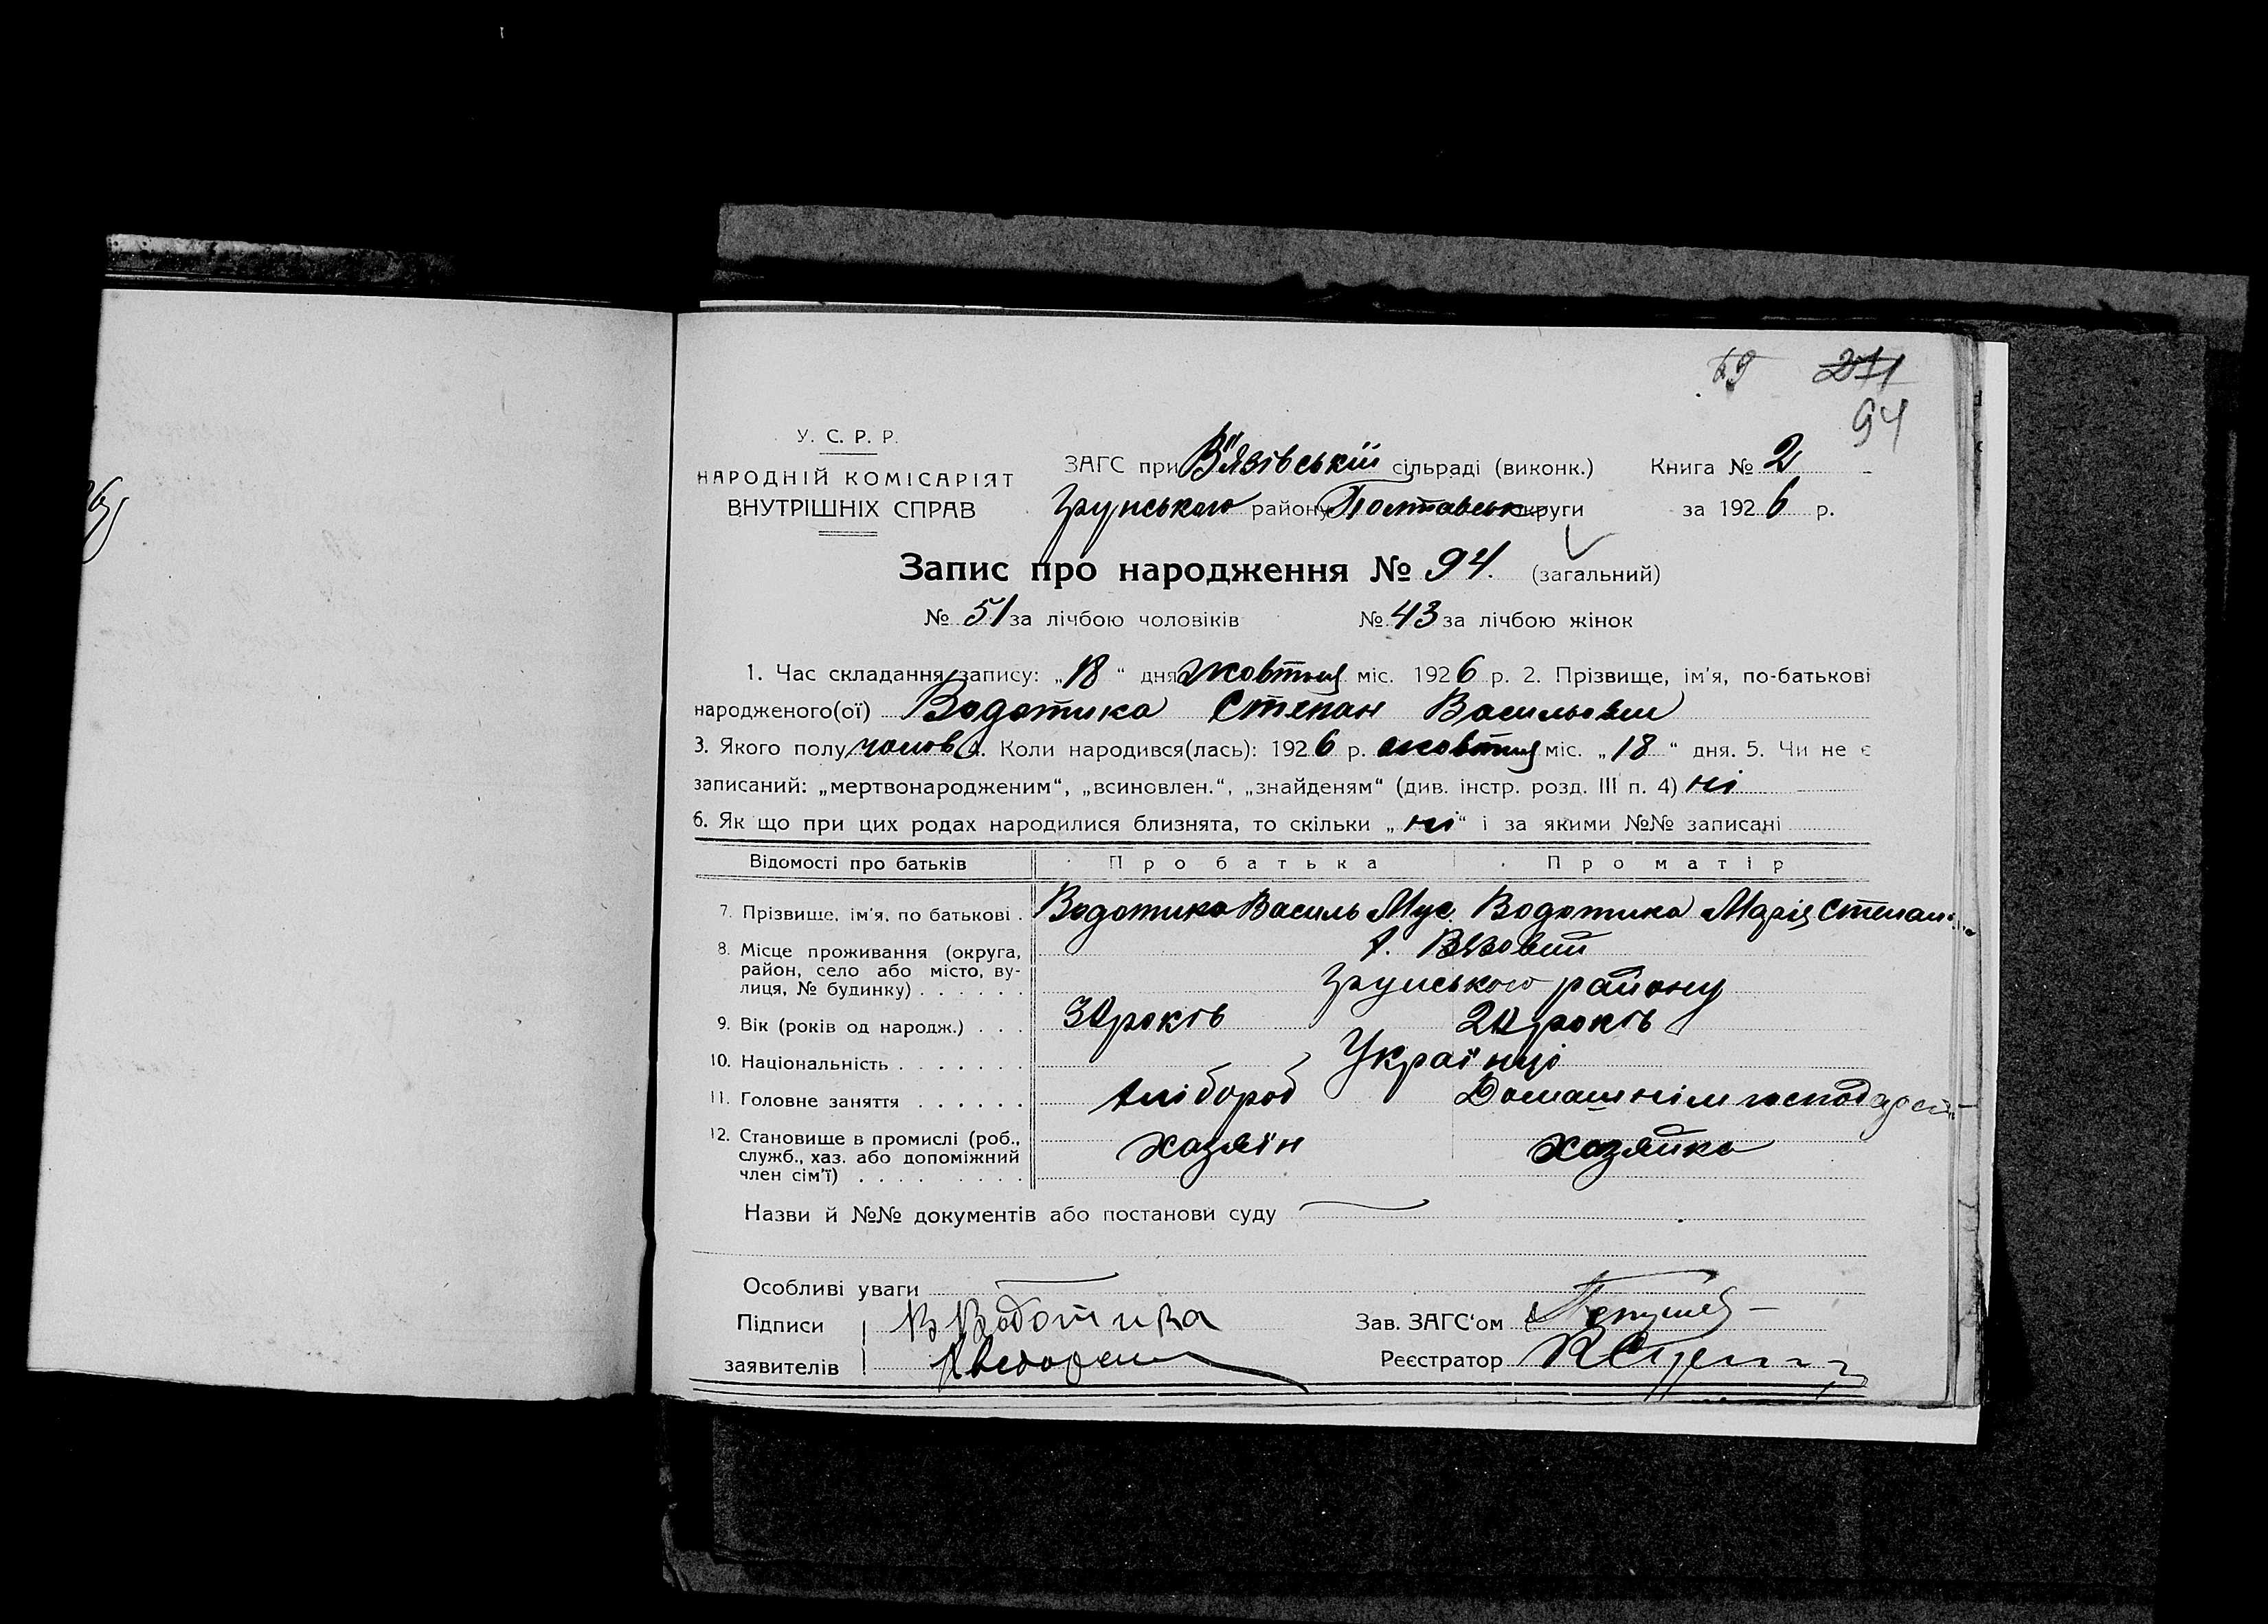 59 271
94
У. С. Р. Р.
НАРОДНІЙ КОМІСАРІЯТ
ВНУТРІШНІХ СПРАВ
ЗАГС при В'язівській сільраді (виконк.) Книга № 2
Грунського району Полтавськ округи за 1926 р.
Запис про народження № 94. (загальний)
№ 51 за лічбою чоловіків № 43 за лічбою жінок
1. Час складання запису: „18“ дня жовтня міс. 1926 р. 2. Прізвище, ім'я, по-батькові
народженого(ої) Водотика Степан Васильович
3. Якого полу чолов 4. Коли народився(лась): 1926 р. жовтня міс. „18“ дня. 5. Чи не є
записаний: „мертвонародженим“, „всиновлен.“, „знайденям“ (див. інстр. розд. III п. 4) ні
6. Як що при цих родах народилися близнята, то скільки „ні“ і за якими №№ записані
Відомості про батьків Про батька Про матір
7. Прізвище, ім'я, по батькові . Водотика Василь Мус. Водотика Марія Степан
8. Місце проживання (округа, х. Вязовий
район, село або місто, ву-
лиця, № будинку) . . . . . . Грунського району
9. Вік (років од народж.) . . . років років
10. Національність . . . . . . . Українці
11. Головне заняття . . . . . . хлібороб Домашнім господарст
12. Становище в промислі (роб., хазяїн хазяйка
служб., хаз. або допоміжний
член сім'ї) . . . . . . . .
Назви й №№ документів або постанови суду
Особливі уваги
Підписи В Водотика Зав. ЗАГС'ом
заявителів Реєстратор